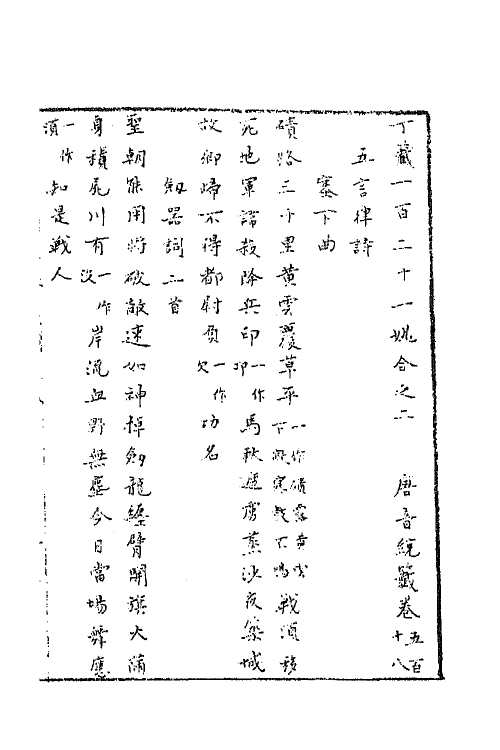 丁籤一百二十一姚合之二　唐音統籤卷五百十八
五言律詩
塞下曲
磧路三千里黄雲覆草平一作磧露黄雲下凝寒鼓不鳴戰須移
死地軍諱殺降兵印一作卬馬秋遮虜蒸沙夜築城
故鄉歸不得都尉負一作欠功名
劍器詞三首
聖朝能用將破敵速如神掉劍龍纏臂開旗火滿
身積屍川有一作没岸流血野無塵今日當場舞應
一作須知是戰人